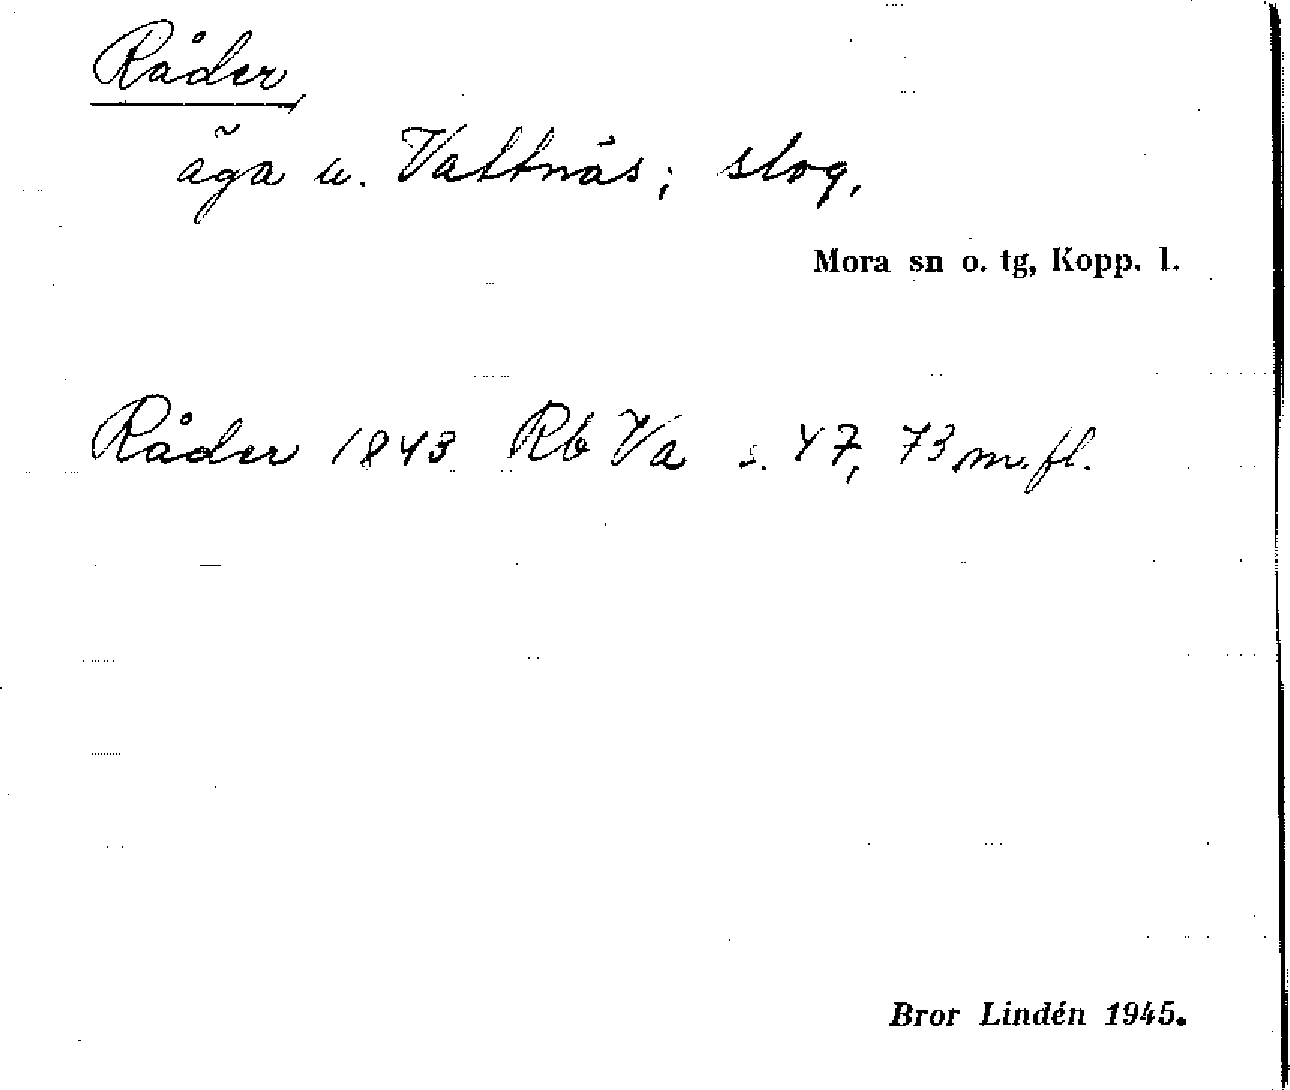 Råder,
äga u. Vattnäs; slog,
Mora sn o. tg, Kopp. l.
Råder 1843 Rb Va s. 47, 73 m. fl.
Bror Lindén 1945.